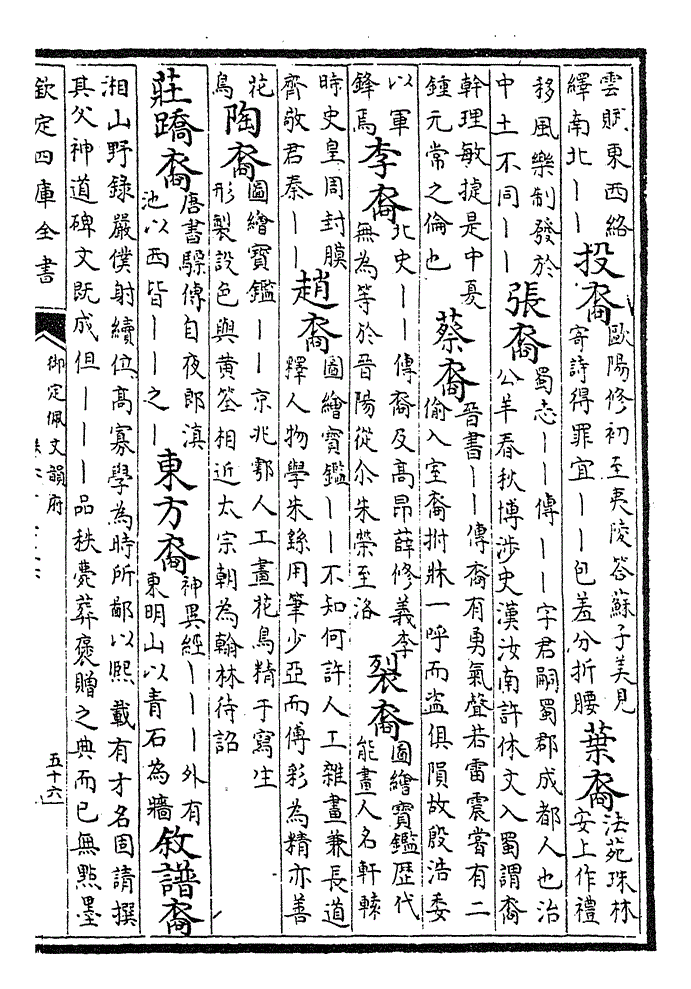 雲賦東西絡
繹南北｜｜
投裔
歐陽修初至夷陵荅蘇子美見
寄詩得罪宜｜｜包羞分折腰
葉裔
法苑珠林
安上作禮
移風樂制發於
中土不同｜｜
張裔
蜀志｜｜傳｜｜字君嗣蜀郡成都人也治
公羊春秋博涉史漢汝南許休文入蜀謂裔
幹理敏捷是中夏
鍾元常之倫也
蔡裔
晉書｜｜傳裔有勇氣聲若雷震嘗有二
偷入室裔拊牀一呼而盜俱隕故殷浩委
以軍
鋒焉
李裔
北史｜｜傳裔及高昂薛修義李
無為等於晉陽從尒朱榮至洛
裂裔
圖繪寶鑑歷代
能畫人名軒轅
時史皇周封膜
齊敬君秦｜｜
趙裔
圖繪寶鑑｜｜不知何許人工雜畫兼長道
釋人物學朱繇用筆少亞而傅彩為精亦善
花
鳥
陶裔
圖繪寶鑑｜｜京兆鄠人工畫花鳥精于寫生
形製設色與黃筌相近太宗朝為翰林待詔
莊蹻裔
唐書驃傳自夜郎滇
池以西皆｜｜之｜
東方裔
神異經｜｜｜外有
東明山以青石為牆
敘譜裔
湘山野録嚴僕射續位高寡學為時所鄙以熙載有才名固請撰
其父神道碑文既成但｜｜｜品秩薨葬褒贈之典而已無點墨
欽定四庫全書
御定佩文韻府
五十六